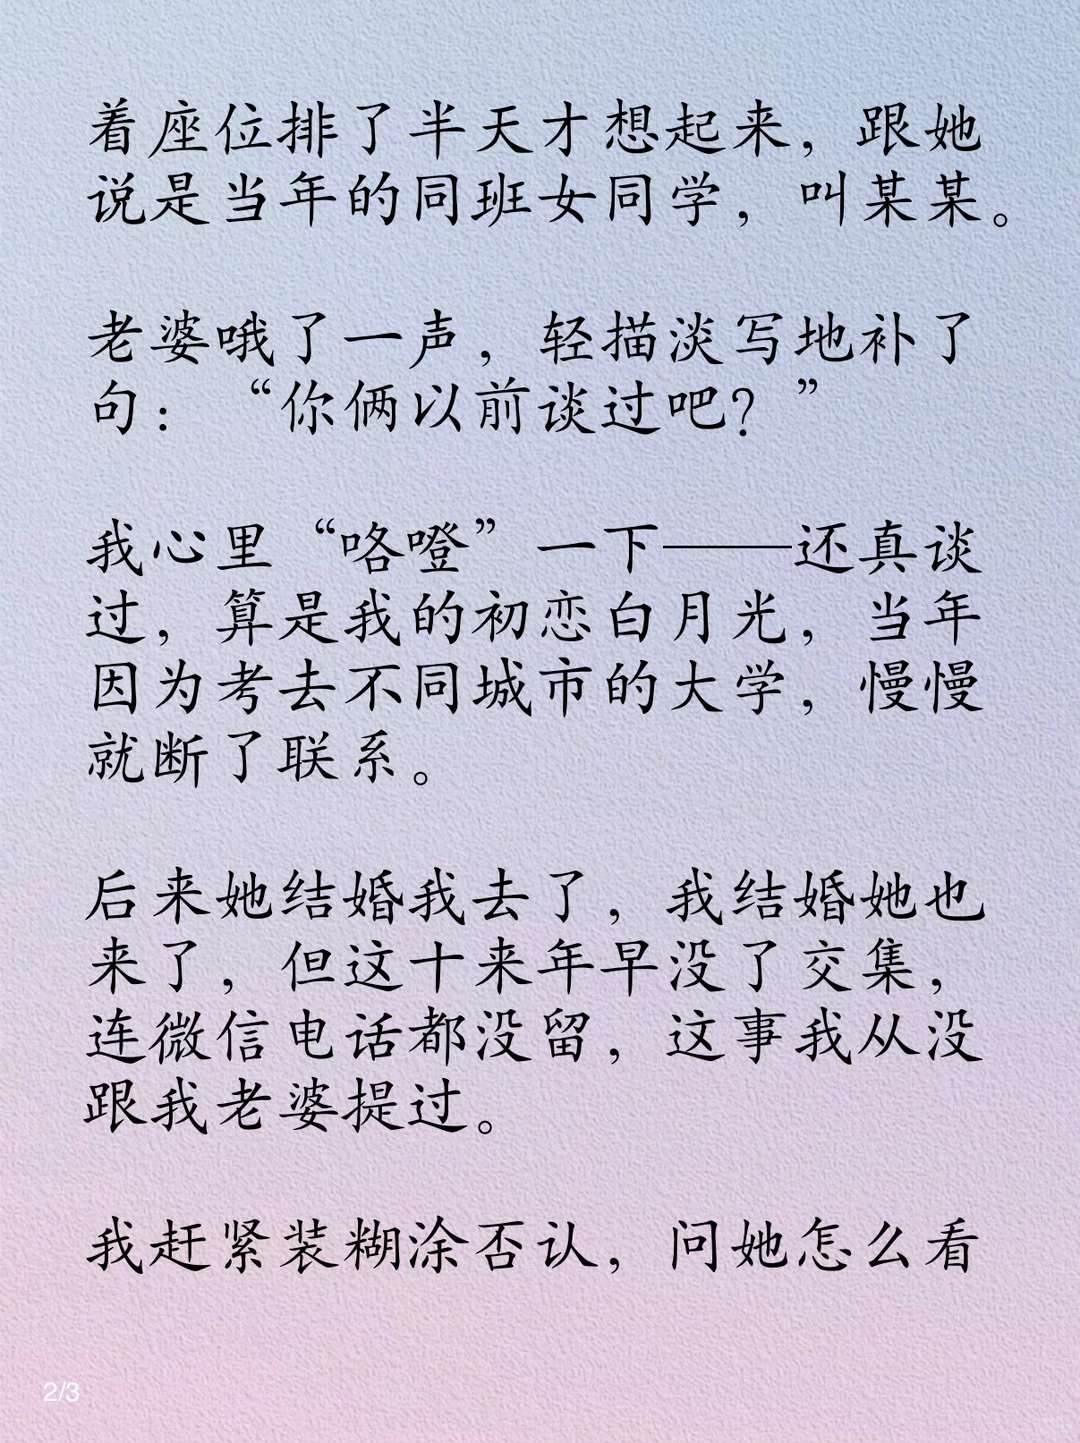 着座位排了半天才想起来，跟她
说是当年的同班女同学，叫某某。
老婆哦了一声，轻描淡写地补了
句：“你俩以前谈过吧？”
我心里“咯噔”一下——还真谈
过，算是我的初恋白月光，当年
因为考去不同城市的大学，慢慢
就断了联系。
后来她结婚我去了，我结婚她也
来了，但这十来年早没了交集，
连微信电话都没留，这事我从没
跟我老婆提过。
我赶紧装糊涂否认，问她怎么看
2/3